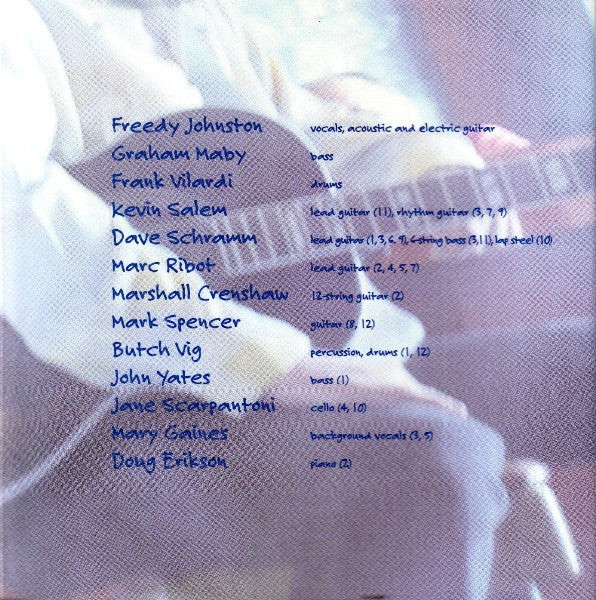 Freedy Johnston vocals, acoustic and electric guitar
Graham Maby bass
Frank Vilardi drums
Kevin Salem lead guitar (11), rhythm guitar (3, 7, 9)
Dave Schramm lead guitar (1, 3, 6, 9), 6-string bass (3,11), lap steel (10)
Marc Ribot lead guitar (2, 4, 5, 7)
Marshall Crenshaw 12-string guitar (2)
Mark Spencer guitar (8, 12)
Butch Vig percussion, drums (1, 12)
John Yates bass (1)
Jane Scarpantoni cello (4, 10)
Mary Gaines background vocals (3, 5)
Doug Erikson piano (2)